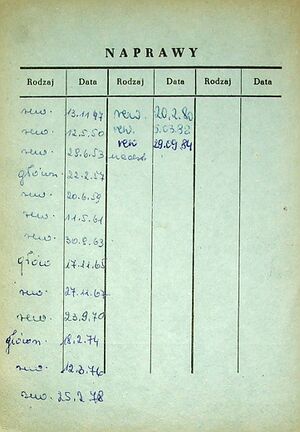 NAPRAWY
Rodzaj Data Rodzaj Data Rodzaj Data
rew. 13.11.47 rew. 20.2.80
rew. 12.5.50 rew. 5.03.82
rew. 28.6.53 rew 29.09.84
główn. 22.2.57
rew. 20.6.59
rew. 11.5.61
rew. 30.8.63
główn 17.11.65
rew. 27.11.67
rew. 23.9.70
główn. 18.2.74
rew. 12.3.76
rew. 25.2.78